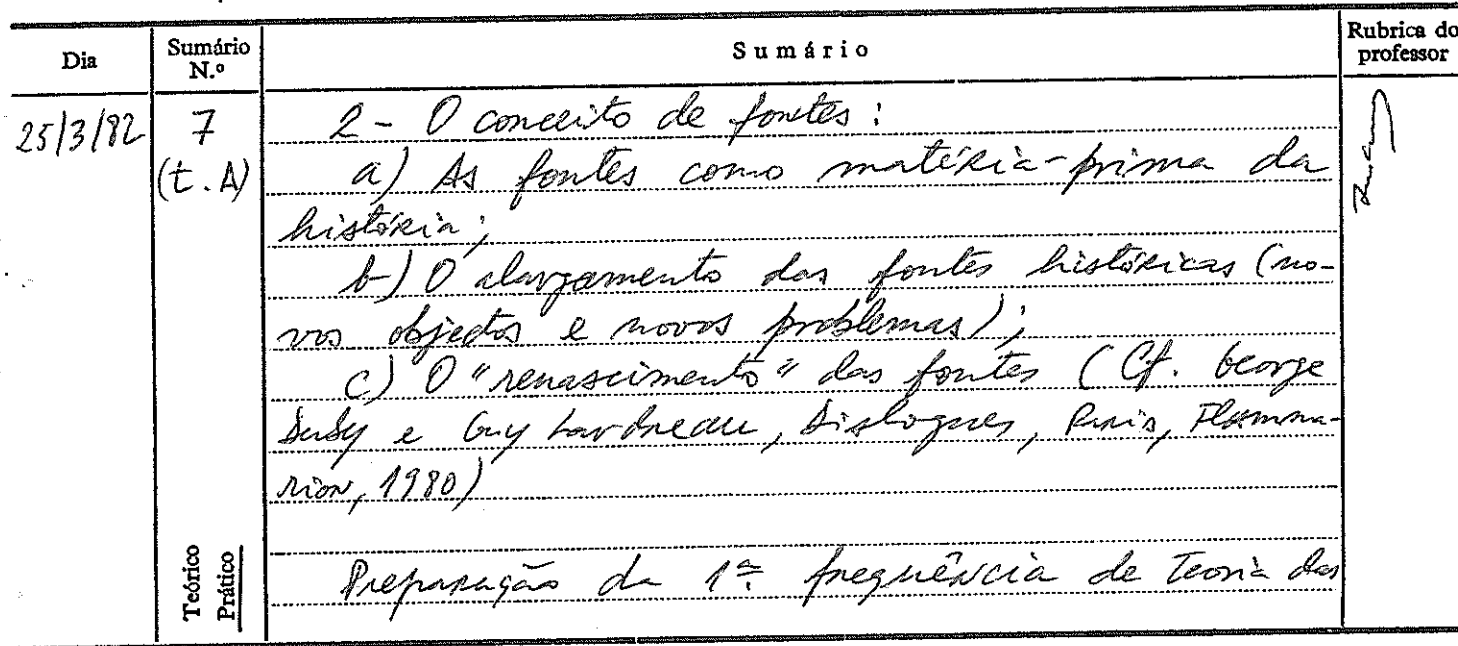 Dia Sumário N.º Sumário Rubrica do professor
25/3/82 7 (t. A) 2 - O conceito de fontes:
a) As fontes como matéria-prima da
história;
b) O alargamento das fontes históricas (no-
vos objectos e novos problemas);
c) O "renascimento" das fontes (Cf. George
Duby e Guy Lardreau, Dialogues, Paris, Flamma-
rion, 1980)
Teórico Prático
Preparação da 1ª frequência de Teoria das